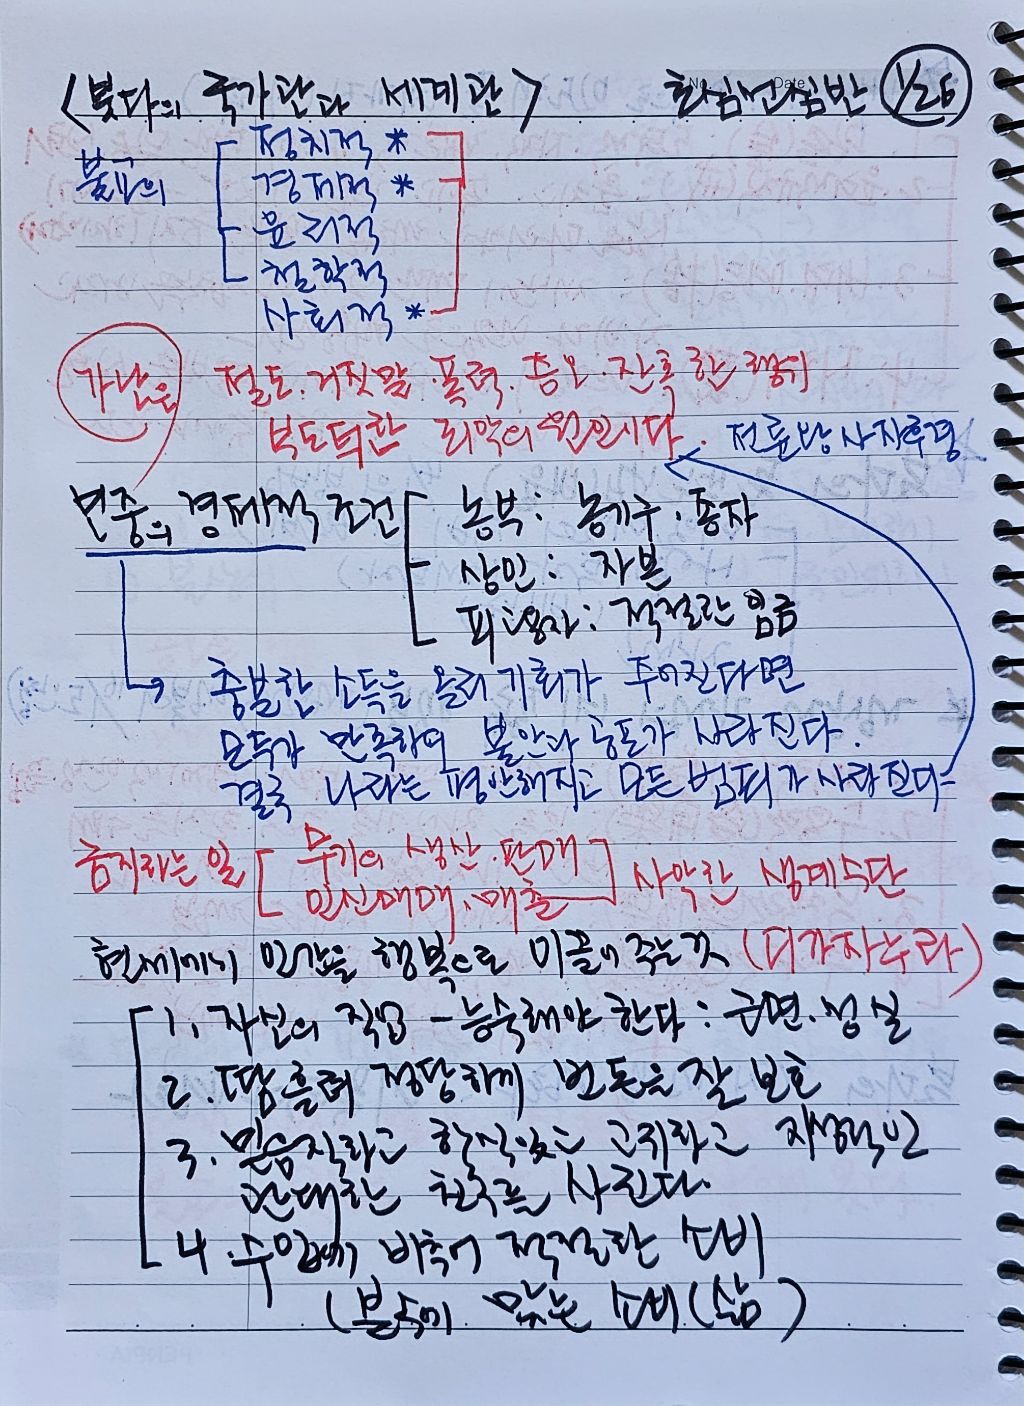 <붓다의 국가관과 세계관> 화엄선심반 1/26
불교의
정치적 *
경제적 *
윤리적
철학적
사회적 *
가난은 절도·거짓말·폭력·증오·잔혹한 행위
부도덕한 죄악의 원인이다. 전륜왕사자후경
민중의 경제적 조건
농부: 농기구·종자
상인: 자본
피고용자: 적절한 임금
충분한 소득을 올려 기회가 주어진다면
모두가 만족하여 불안과 공포가 사라진다.
결국 나라는 평안해지고 모든 범죄가 사라진다
금지하는 일
무기의 생산·판매
인신매매, 매춘
사악한 생계수단
현세에서 인간을 행복으로 이끌어 주는 것 (디가자누라)
1. 자신의 직업 - 능숙해야 한다: 근면·성실
2. 땀흘려 정당하게 번돈을 잘 보호
3. 믿음직하고 학식있고 고귀하고 지성적인
관대한 친구를 사귄다.
4. 수입에 비추어 적절한 소비
(분수에 맞는 소비(삶)